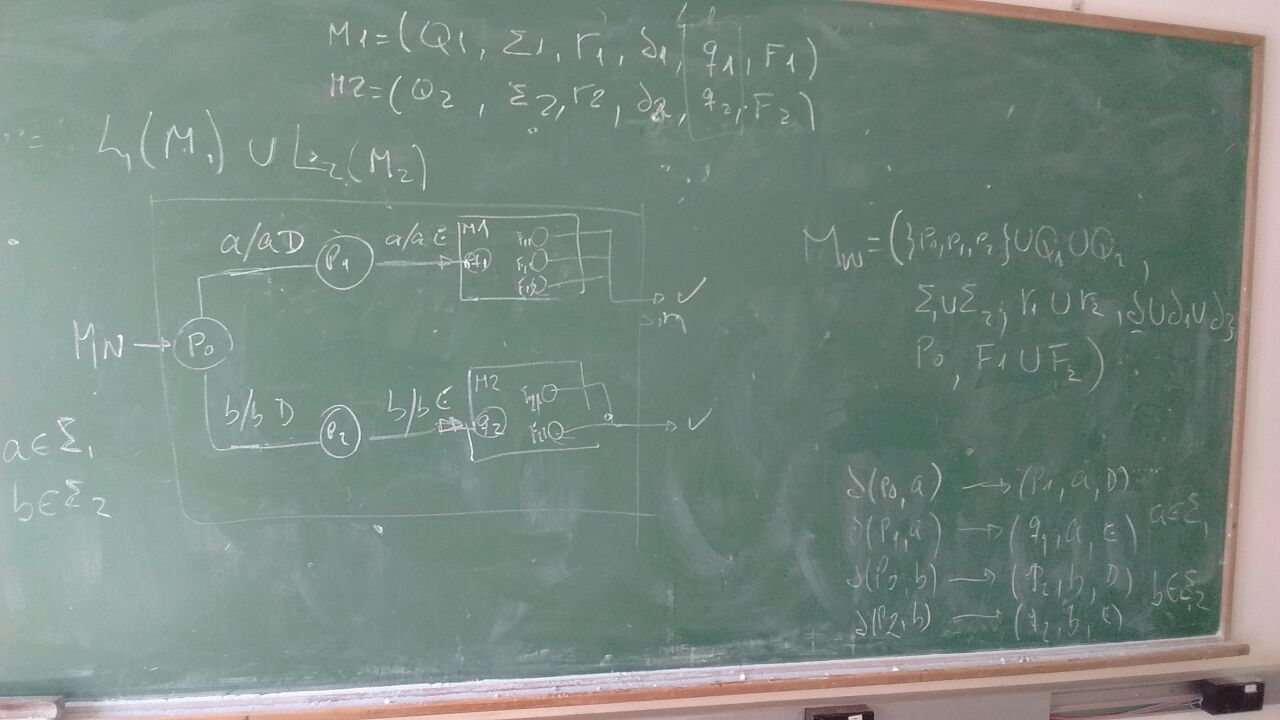 M1=(Q1, Σ1, Γ1, δ1, q1, F1)
M2=(Q2, Σ2, Γ2, δ2, q2, F2)
L1(M1) ∪ L2(M2)
a/a D
P1
a/a E
M1
q1
MN
P0
sim
b/b D
P2
b/b E
M2
q2
a∈Σ1
b∈Σ2
MN=({P0,P1,P2}∪Q1∪Q2,
Σ1∪Σ2, Γ1∪Γ2, δ∪δ1∪δ2,
P0, F1∪F2)
δ(P0,a) → (P1,a,D)
δ(P1,a) → (q1,a,E) a∈Σ1
δ(P0,b) → (P2,b,D)
δ(P2,b) → (q2,b,E) b∈Σ2